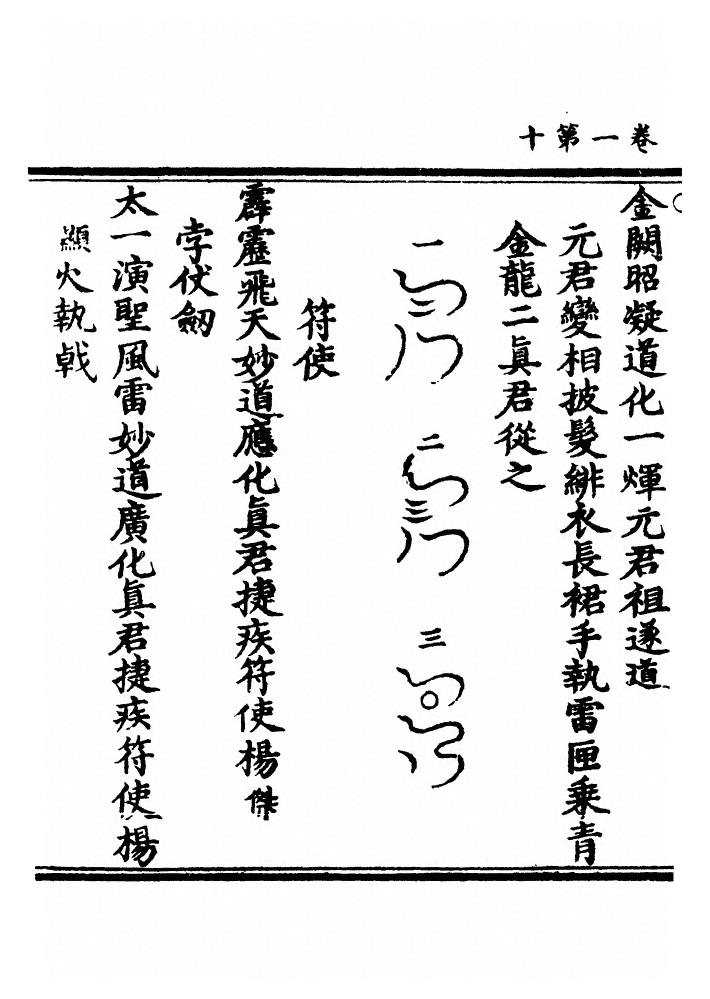 卷一第十
金闕昭凝道化一煇元君祖遂道
元君變相披髮緋衣長裙手執雷匣乘青
金龍二眞君從之
一
二
三
符使
霹靂飛天妙道應化眞君捷疾符使楊傑
孛仗劒
太一演聖風雷妙道廣化眞君捷疾符使楊
顯火執戟